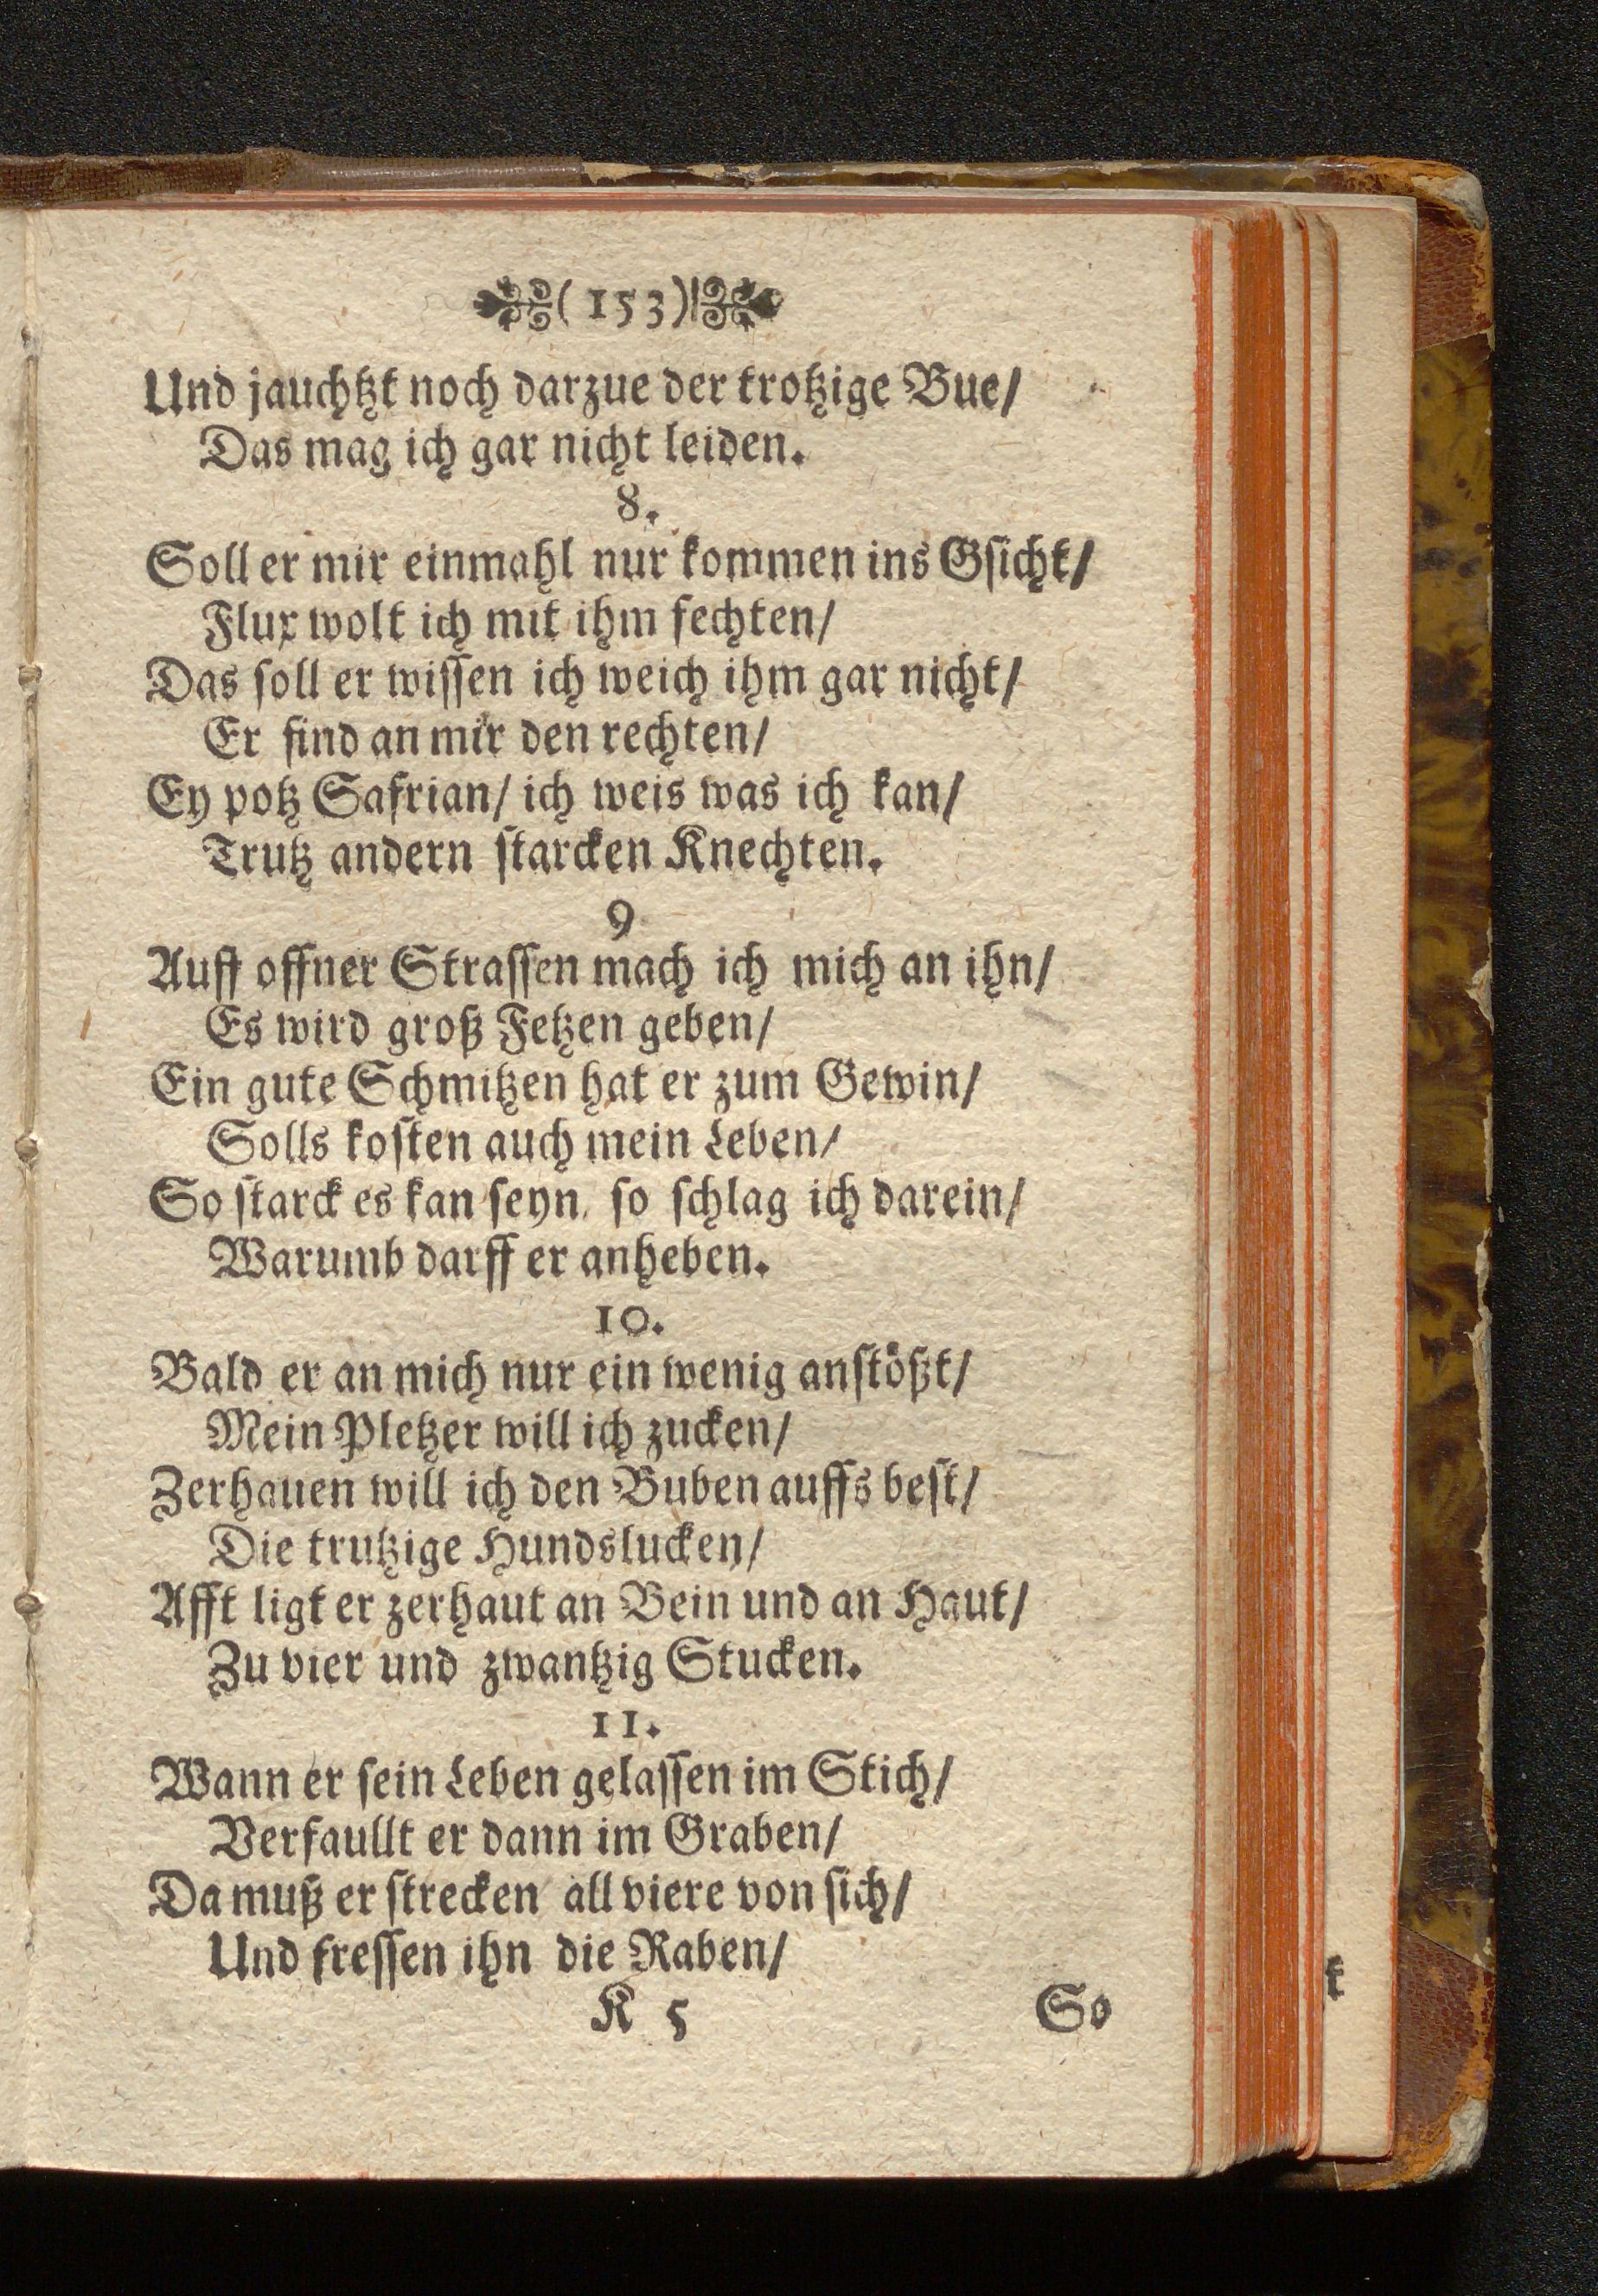 (153)
Und jauchtzt noch darzue der trotzige Bue/
Das mag ich gar nicht leiden.
8.
Soll er mir einmahl nur kommen ins Gsicht/
Flux wolt ich mit ihm fechten/
Das soll er wissen ich weich ihm gar nicht/
Er find an mir den rechten/
Ey potz Safrian/ ich weis was ich kan/
Trutz andern starcken Knechten.
9
Auff offner Strassen mach ich mich an ihn/
Es wird groß Fetzen geben/
Ein gute Schmitzen hat er zum Gewin/
Solls kosten auch mein Leben/
So starck es kan seyn, so schlag ich darein/
Warumb darff er anheben.
10.
Bald er an mich nur ein wenig anstößt/
Mein Pletzer will ich zucken/
Zerhauen will ich den Buben auffs best/
Die trutzige Hundslucken/
Afft ligt er zerhaut an Bein und an Haut/
Zu vier und zwantzig Stucken.
11.
Wann er sein Leben gelassen im Stich/
Verfaullt er dann im Graben/
Da muß er strecken all viere von sich/
Und fressen ihn die Raben/
K 5 So
t